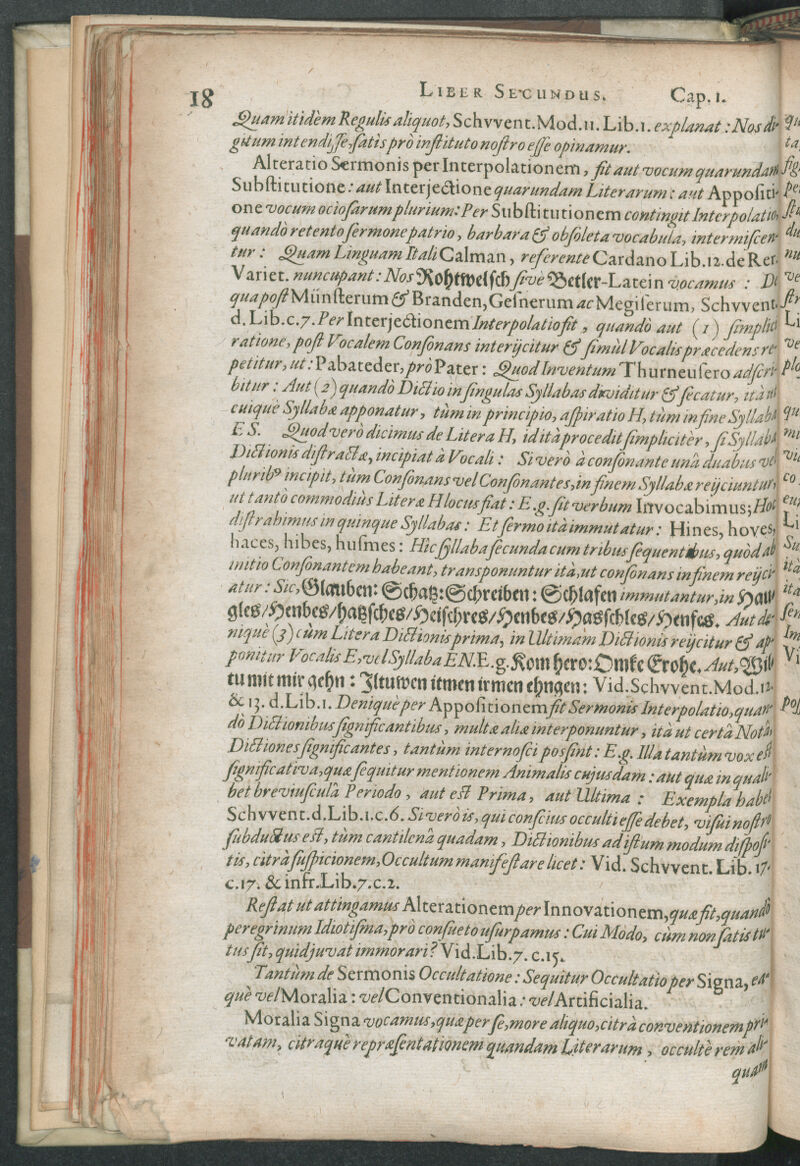 18 LIBER SECUNDUS. Cap. 1.
Quam itidèm Regulis aliquot, Schvvent. Mod. 11. Lib. 1. explanat : Nos di-
gitum intendisse, satis prò instituto nostro esse opinamur.
Alteratio Sermonis per Interpolationem, fit aut vocum quarundam
Substitutione : aut Interjectione quarundam Literarum : aut Appositi-
one vocum ociosarum plurium : Per Substitutionem contingit Interpolatio,
quandò retento sermone patrio, barbara & obsoleta vocabula, intermiscen-
tur : Quam Linguam Itali Calman, referente Cardano Lib. 12. de Rer.
Variet. nuncupant : Nos Rohtwelsch sivè Betler-Latein vocamus : De
qua post Münsterum & Branden, Gesnerum ac Megiserum, Schvvent.
d. Lib. c. 7. Per Interjectionem Interpolatio fit, quandò aut (1) simplici
ratione, post Vocalem Consonans interijcitur & simùl Vocalis præcedens re-
petitur, ut : Pabateder, prò Pater : Quod Inventum Thurneusero adscri-
bitur : Aut (2) quandò Dictio in singulas Syllabas dividitur & secatur, ità ut
cuiquè Syllabæ apponatur, tùm in principio, aspiratio H, tùm in fine Syllaba
ES. Quod verò dicimus de Litera H, id ità procedit simplicitèr, si Syllaba
Dictionis distractæ, incipiat à Vocali : Si verò à consonante unâ duabus vel
plurib9 incipit, tùm Consonans vel Consonantes, in finem Syllabæ reijciuntur,
ut tantò commodiùs Literæ H locus fiat : E.g. sit verbum Invocabimus; Hoc
distrahimus in quinque Syllabas : Et sermo ità immutatur : Hines, hoves,
haces, hibes, husmes : Hìc syllaba secunda cum tribus sequentibus, quòd ab
initio Consonantem habeant, transponuntur ità, ut consonans in finem reijci-
atur : Sic, Glauben : Schatz : Schreiben : Schlafen immutantur, in Hau-
gles/Henbes/hatzsches/Heischres/Henbes/Hasschles/Henfes. Aut de-
niquè (3) cùm Litera Dictionis prima, in Ultimam Dictionis reijcitur & ap-
ponitur Vocalis E, vel Syllaba EN. E.g. Kom hero : Omke Erohe. Aut, Wilt
tu mit mir gehn : Iltuwen itmen irmen ehngen : Vid. Schvvent. Mod. 12.
& 13. d. Lib. 1. Deniquè per Appositionem fit Sermonis Interpolatio, quan-
dò Dictionibus significantibus, multæ aliæ interponuntur, ità ut certâ Notâ,
Dictiones significantes, tantùm internosci possint : E.g. Illa tantùm vox est
significativa, quæ sequitur mentionem Animalis cujusdam : aut quæ in quali-
bet breviusculâ Periodo, aut est Prima, aut Ultima : Exempla habet
Schvvent. d. Lib. 1. c. 6. Si verò is, qui conscius occulti esse debet, visui nostro
subductus est, tùm cantilenâ quadam, Dictionibus ad istum modum disposi-
tis, citrà suspicionem, Occultum manifestare licet : Vid. Schvvent. Lib. 17.
c. 17. & infr. Lib. 7. c. 2.
Restat ut attingamus Alterationem per Innovationem, quæ fit, quandò
peregrinum Idiotisma, prò consueto usurpamus : Cui Modo, cùm non satis tu-
tus sit, quid juvat immorari? Vid. Lib. 7. c. 15.
Tantùm de Sermonis Occultatione : Sequitur Occultatio per Signa, ea-
què vel Moralia : vel Conventionalia : vel Artificialia.
Moralia Signa vocamus, quæ per se, more aliquo, citrà conventionem pri-
vatam, citraquè repræsentationem quandam Literarum, occultè rem ali-
quam